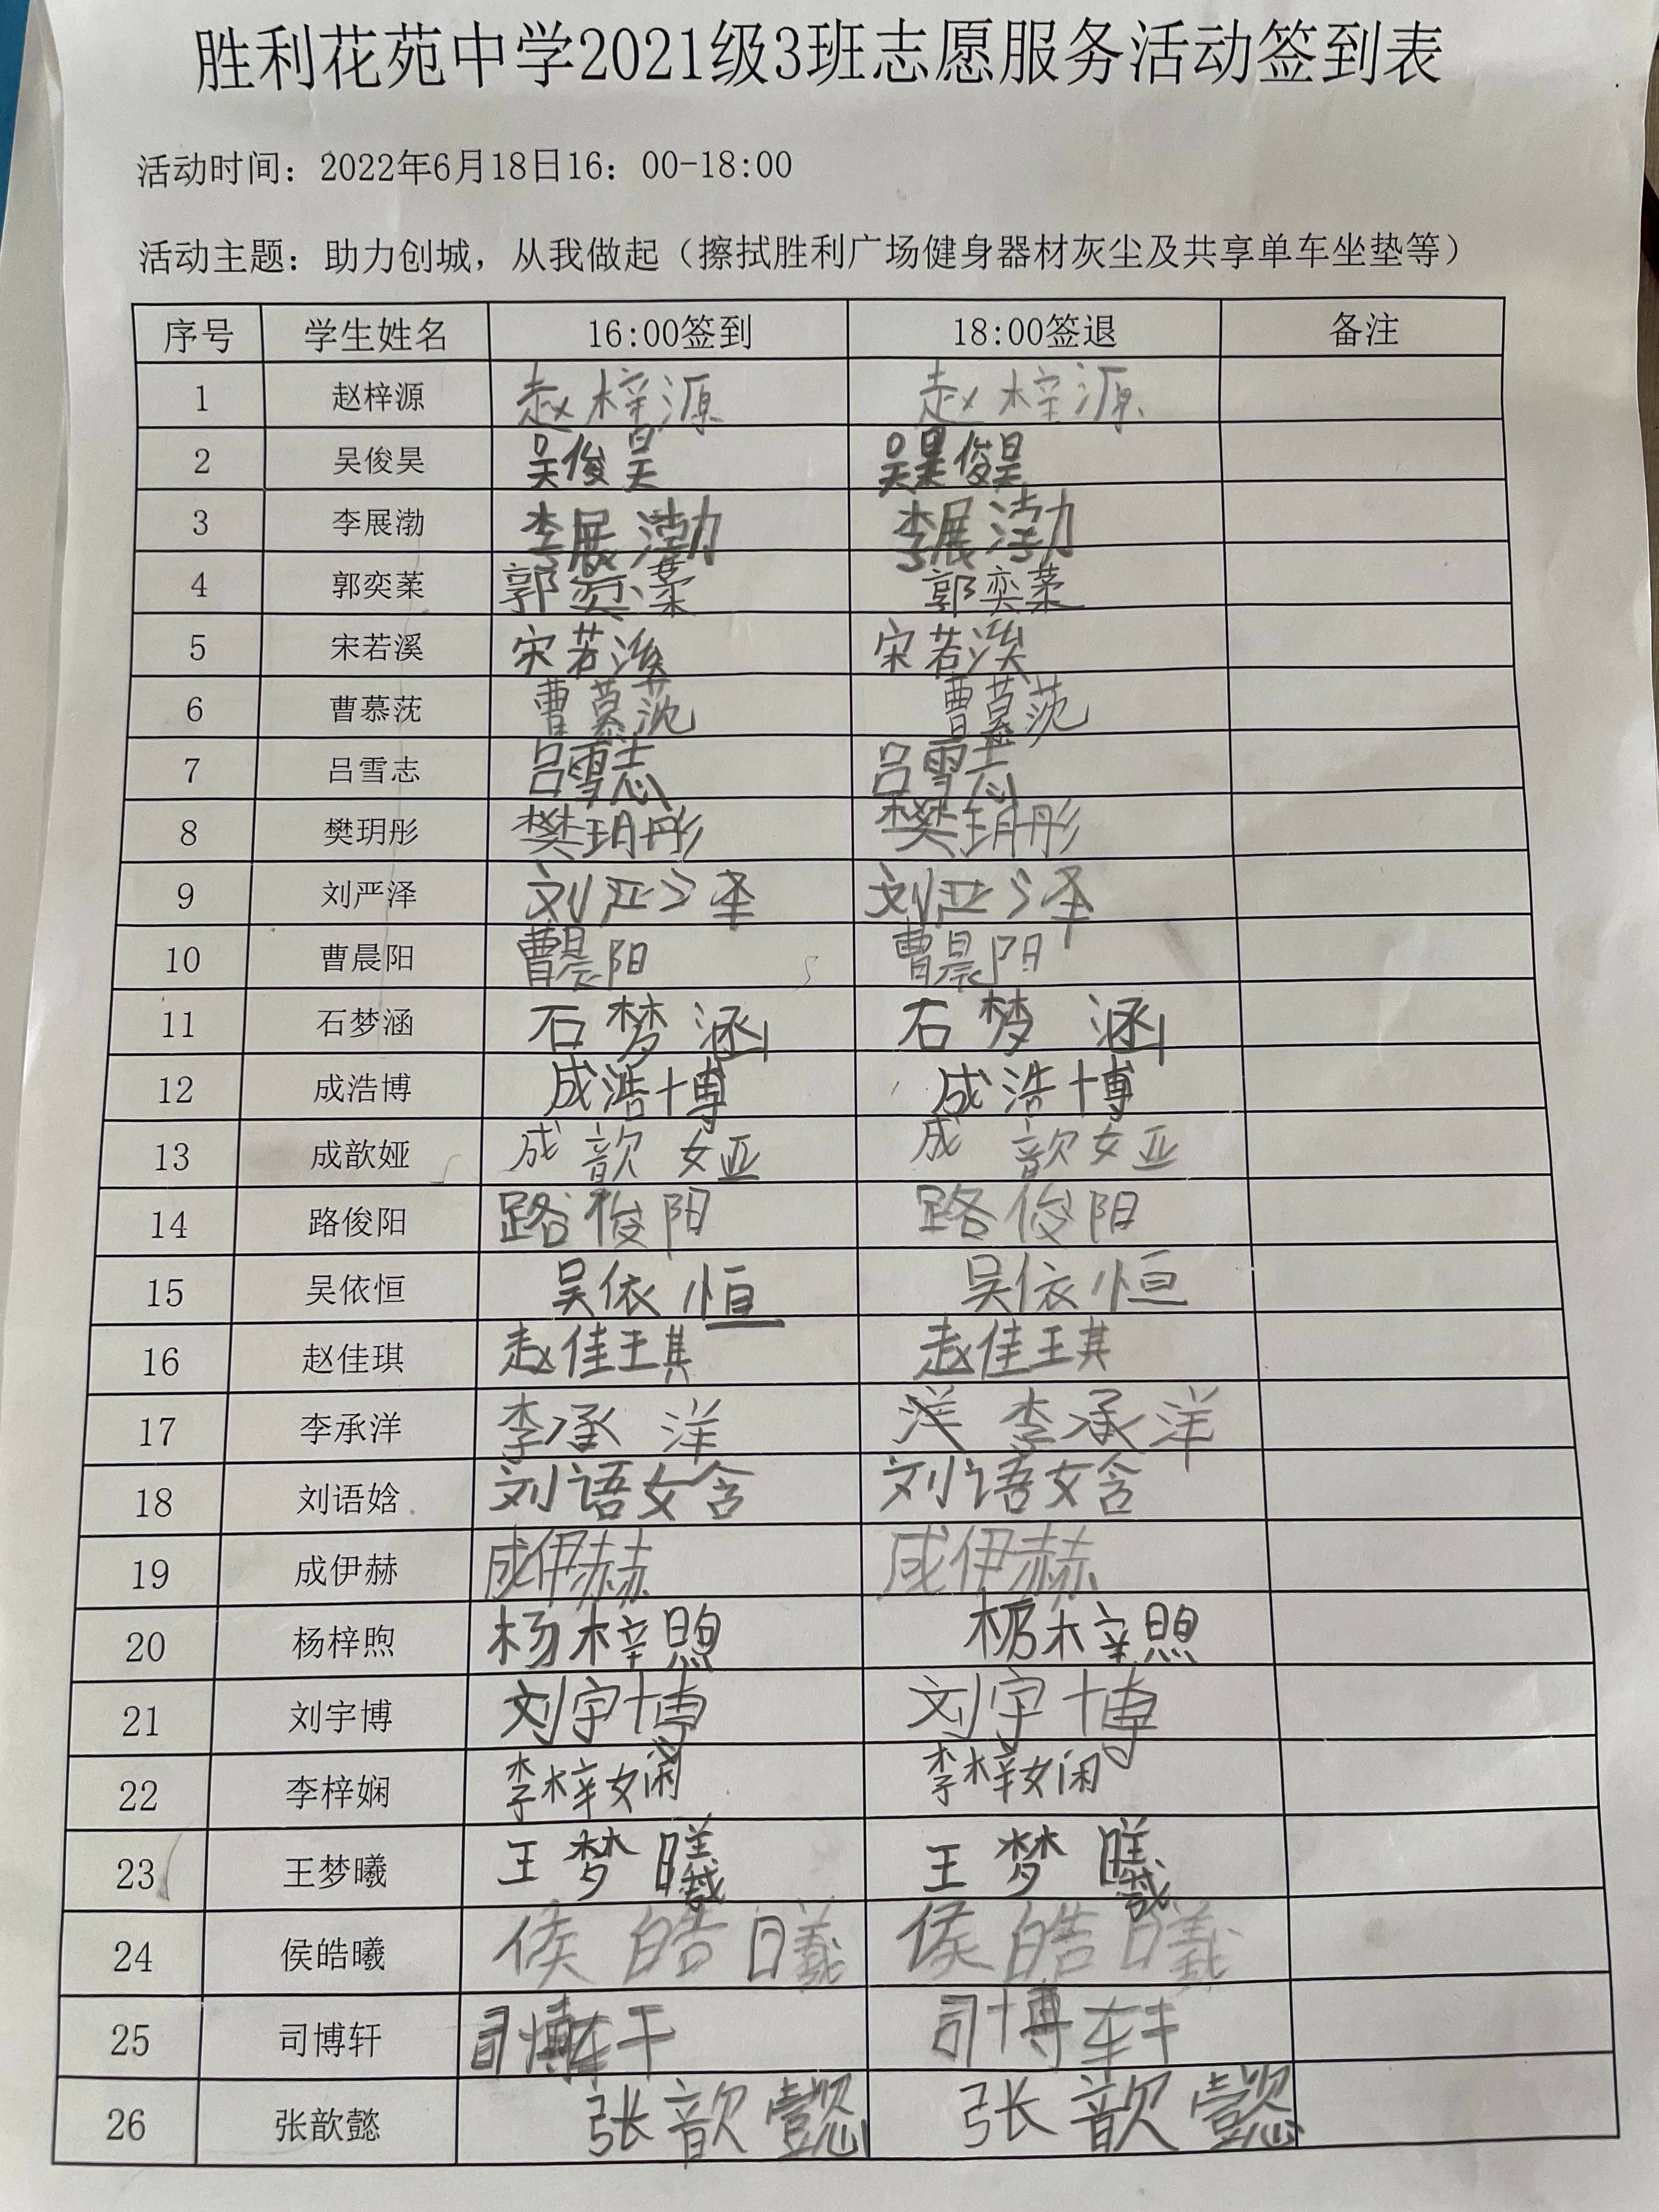 胜利花苑中学2021级3班志愿服务活动签到表
活动时间：2022年6月18日16：00-18:00
活动主题：助力创城，从我做起（擦拭胜利广场健身器材灰尘及共享单车坐垫等）
序号 学生姓名 16:00签到 18:00签退 备注
1 赵梓源 赵梓源 赵梓源
2 吴俊昊 吴俊昊 吴俊昊
3 李展渤 李展渤 李展渤
4 郭奕蕠 郭奕蕠 郭奕蕠
5 宋若溪 宋若溪 宋若溪
6 曹慕茺 曹慕茺 曹慕茺
7 吕雪志 吕雪志 吕雪志
8 樊玥彤 樊玥彤 樊玥彤
9 刘严泽 刘严泽 刘严泽
10 曹晨阳 曹晨阳 曹晨阳
11 石梦涵 石梦涵 石梦涵
12 成浩博 成浩博 成浩博
13 成歆娅 成歆娅 成歆娅
14 路俊阳 路俊阳 路俊阳
15 吴依恒 吴依恒 吴依恒
16 赵佳琪 赵佳琪 赵佳琪
17 李承洋 李承洋 洋 李承洋
18 刘语姶 刘语姶 刘语姶
19 成伊赫 成伊赫 成伊赫
20 杨梓煦 杨梓煦 杨梓煦
21 刘宇博 刘宇博 刘宇博
22 李梓娴 李梓娴 李梓娴
23 王梦曦 王梦曦 王梦曦
24 侯皓曦 侯皓曦 侯皓曦
25 司博轩 司博轩 司博轩
26 张歆懿 张歆懿 张歆懿